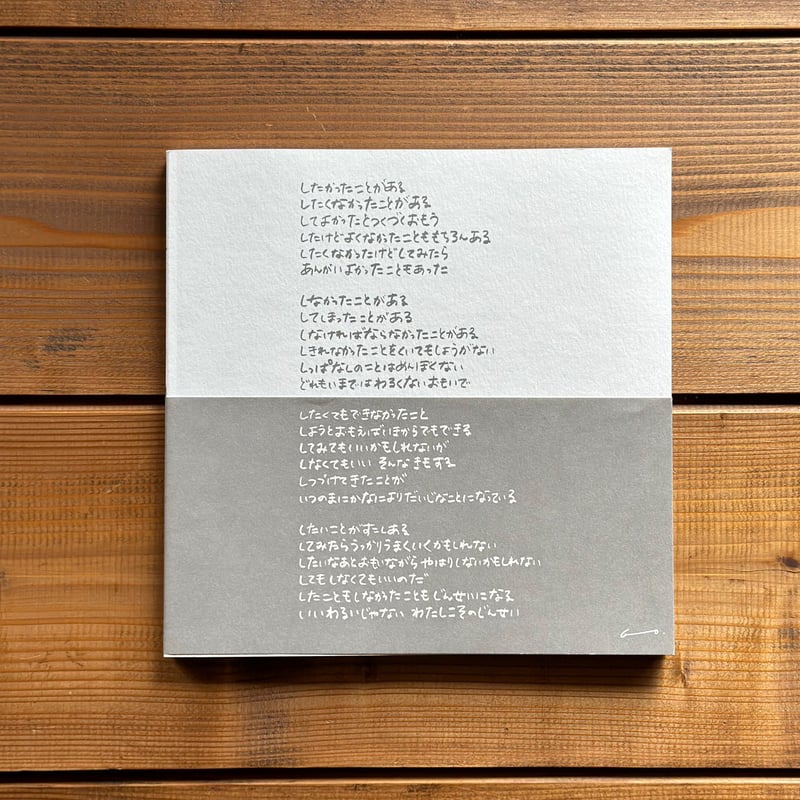 したかったことがある
したくなかったことがある
してよかったとつくづくおもう
したけどよくなかったこともちろんある
したくなかったけどしてみたら
あんがいよかったこともあった
しなかったことがある
してしまったことがある
しなければならなかったことがある
しきれなかったことをくいてもしょうがない
しっぱなしのことはめんぼくない
どれもいまではわるくないおもいで
したくてもできなかったこと
しようとおもえばいまからでもできる
してみてもいいかもしれないが
しなくてもいい そんなきもする
しつづけてきたことが
いつのまにかなによりだいじなことになっている
したいことがすこしある
してみたらうっかりうまくいくかもしれない
したいなあとおもいながらやはりしないかもしれない
してもしなくてもいいのだ
したこともしなかったことも じんせいになる
いいわるいじゃない わたしこそのじんせい